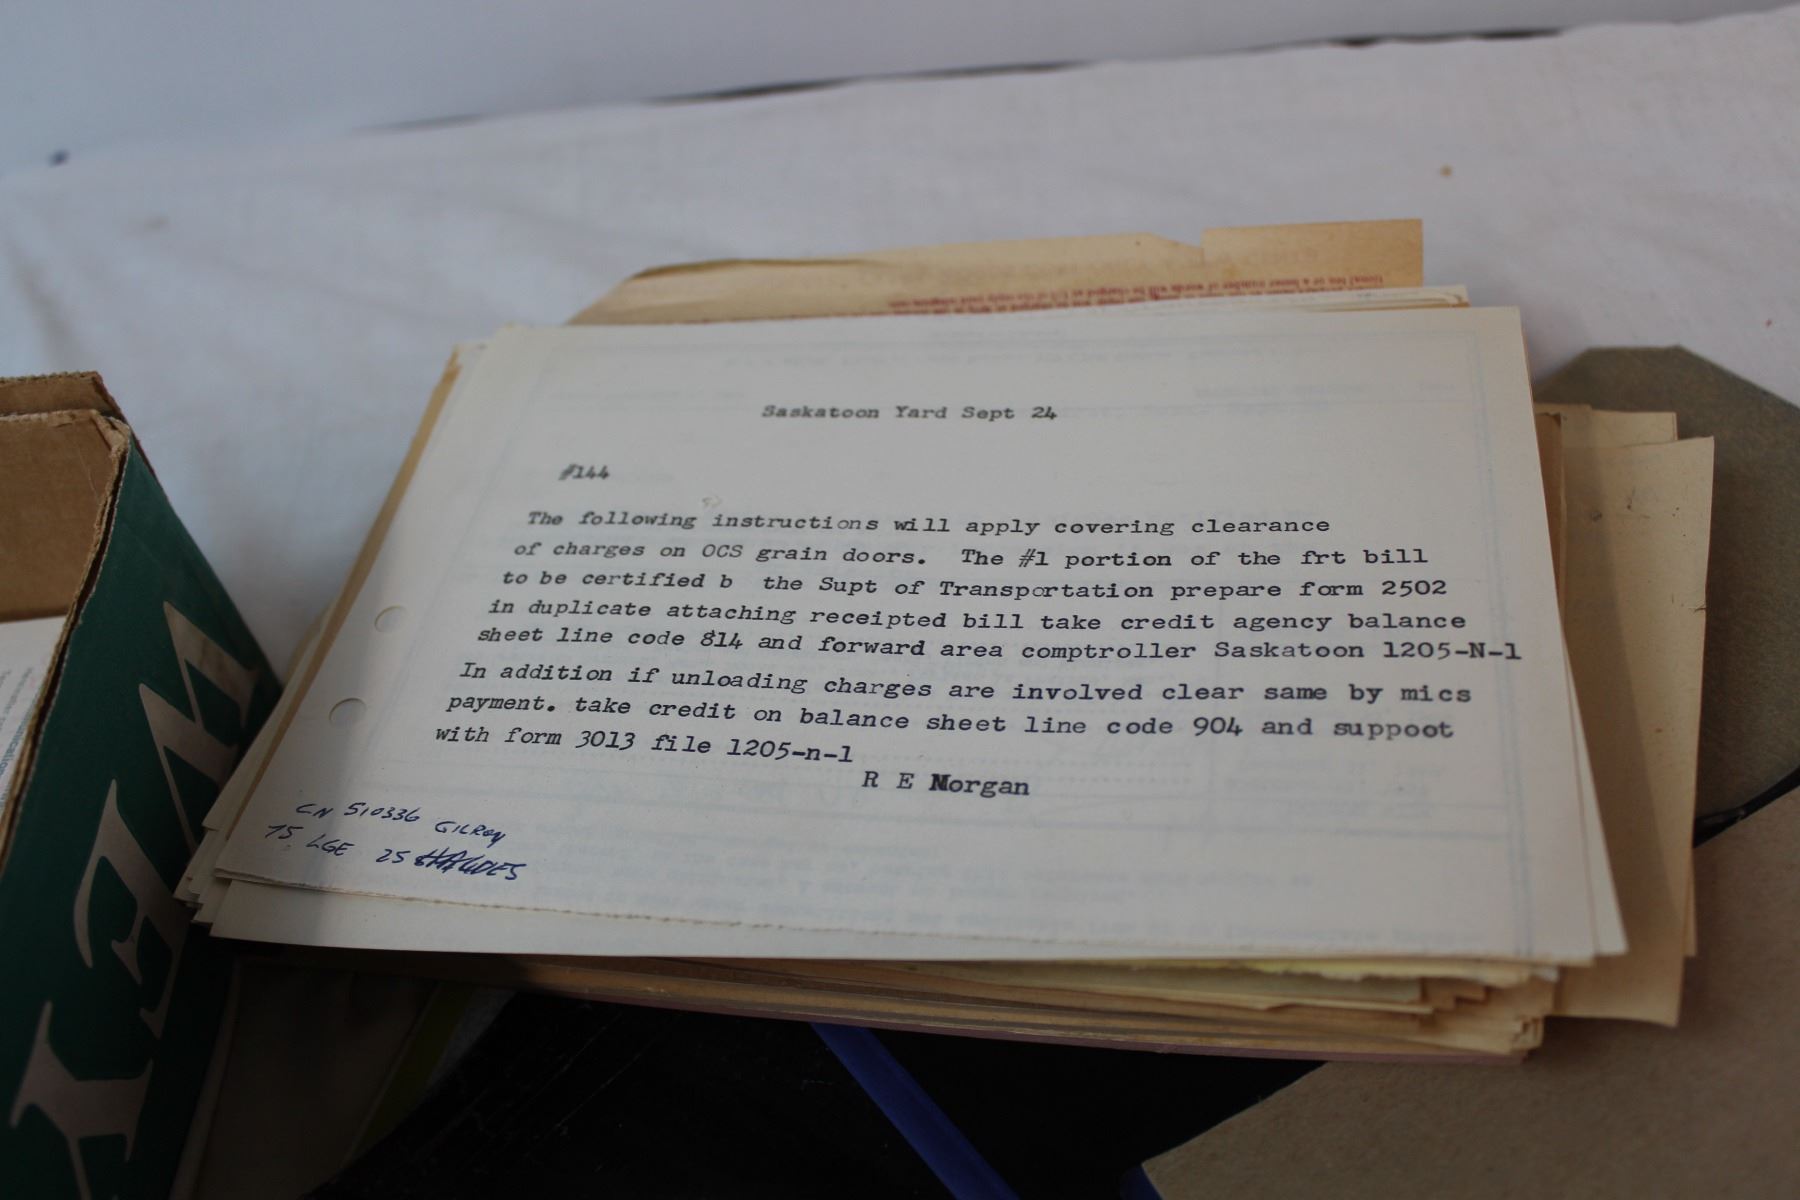 Saskatoon Yard Sept 24
#144
The following instructions will apply covering clearance
of charges on OCS grain doors. The #1 portion of the frt bill
to be certified b the Supt of Transportation prepare form 2502
in duplicate attaching receipted bill take credit agency balance
sheet line code 814 and forward area comptroller Saskatoon 1205-N-1
In addition if unloading charges are involved clear same by mics
payment. take credit on balance sheet line code 904 and suppoot
with form 3013 file 1205-n-1
R E Morgan
CN 510336 GILROY
75 LGE 25